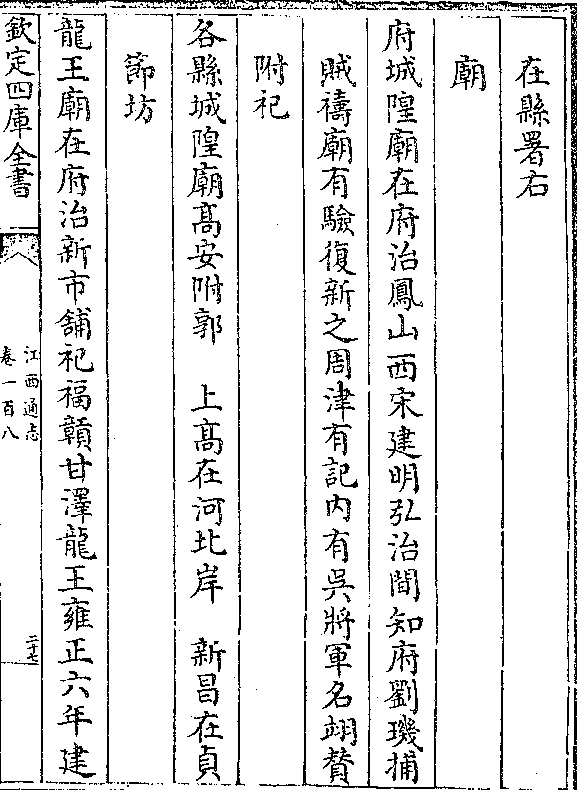 在縣署右
廟
府城隍廟在府治鳳山西宋建明弘治間知府劉璣捕
賊禱廟有驗復新之周津有記内有吳將軍名翊賛
附祀
各縣城隍廟髙安附郭　上髙在河北岸　新昌在貞
節坊
龍王廟在府治新市舖祀福贛甘澤龍王雍正六年建
欽定四庫全書
江西通志
卷一百八
二十七